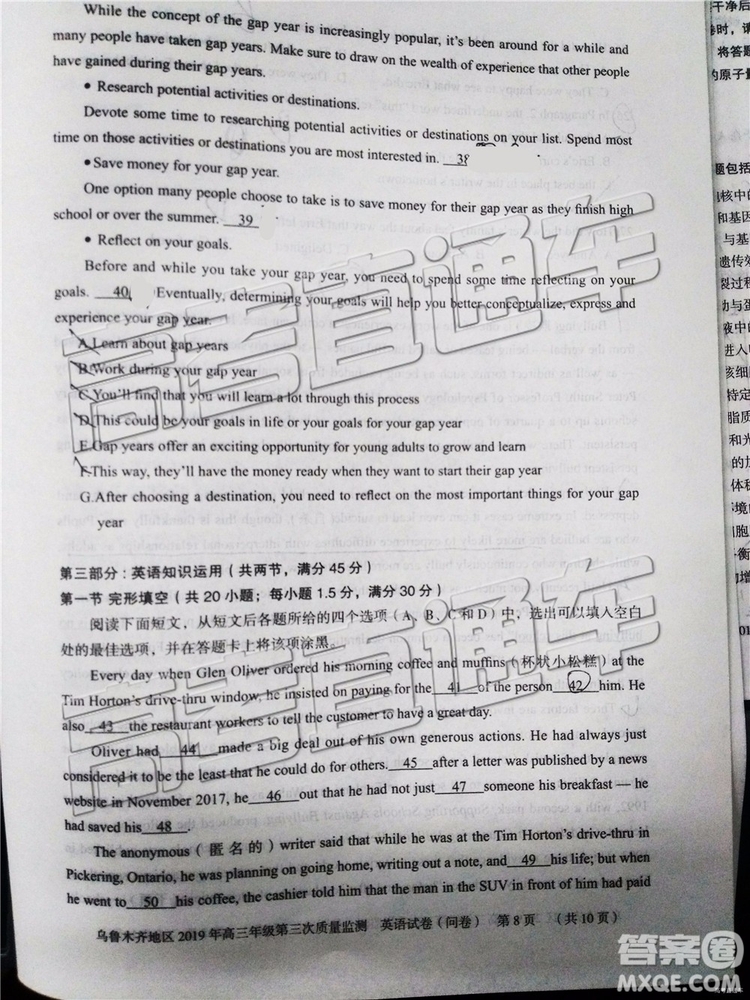 While the concept of the gap year is increasingly popular, it's been around for a while and
many people have taken gap years. Make sure to draw on the wealth of experience that other people
have gained during their gap years.
• Research potential activities or destinations.
Devote some time to researching potential activities or destinations on your list. Spend most
time on those activities or destinations you are most interested in. 38
•Save money for your gap year.
One option many people choose to take is to save money for their gap year as they finish high
school or over the summer. 39
• Reflect on your goals.
Before and while you take your gap year, you need to spend some time reflecting on your
goals. 40 Eventually, determining your goals will help you better conceptualize, express and
experience your gap year.
A.Learn about gap years
B.Work during your gap year
C.You'll find that you will learn a lot through this process
D.This could be your goals in life or your goals for your gap year
E.Gap years offer an exciting opportunity for young adults to grow and learn
F.This way, they'll have the money ready when they want to start their gap year
G.After choosing a destination, you need to reflect on the most important things for your gap
year
第三部分:英语知识运用(共两节,满分45分)
第一节 完形填空(共20小题;每小题1.5分,满分30分)
阅读下面短文,从短文后各题所给的四个选项(A、B、C和D)中,选出可以填入空白
处的最佳选项,并在答题卡上将该项涂黑。
Every day when Glen Oliver ordered his morning coffee and muffins(杯状小松糕) at the
Tim Horton's drive-thru window, he insisted on paying for the 41 of the person 42 him. He
also 43 the restaurant workers to tell the customer to have a great day.
Oliver had 44 made a big deal out of his own generous actions. He had always just
considered it to be the least that he could do for others. 45 after a letter was published by a news
website in November 2017, he 46 out that he had not just 47 someone his breakfast — he
had saved his 48 .
The anonymous(匿名的)writer said that while he was at the Tim Horton's drive-thru in
Pickering, Ontario, he was planning on going home, writing out a note, and 49 his life; but when
he went to 50 his coffee, the cashier told him that the man in the SUV in front of him had paid
乌鲁木齐地区2019年高三年级第三次质量监测 英语试卷(问卷) 第8页 (共10页)
高考直通车
高考直通车
答案圈
MXQE.COM